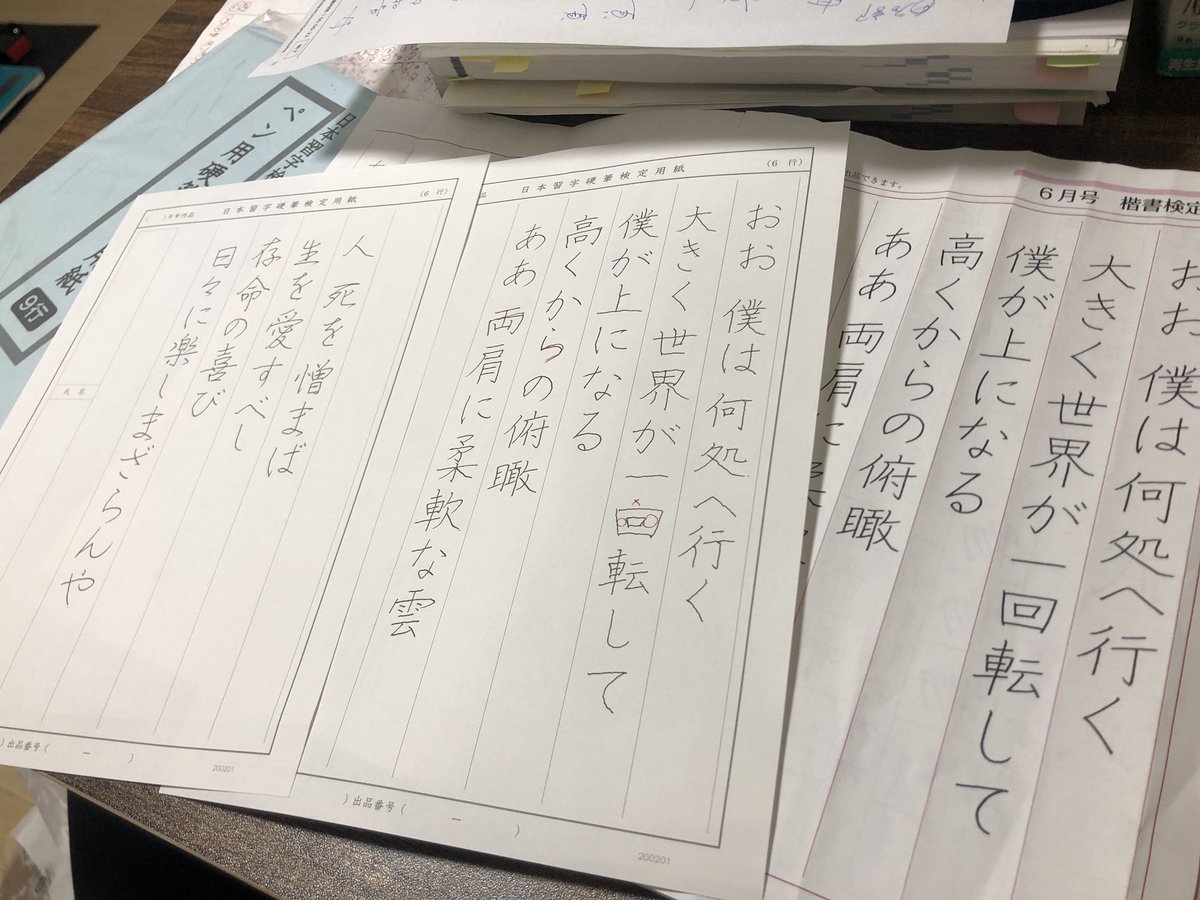 日本習字
ペン用硬
9行
(6 行)
日本習字硬筆検定用紙
)月号作品
人 死を憎まば
生を愛すべし
存命の喜び
日々に楽しまざらんや
氏名
)出品番号( ー )
200201
(6 行)
日本習字硬筆検定用紙
品
おお 僕は何処へ行く
大きく世界が一回転して
僕が上になる
高くからの俯瞰
ああ 両肩に柔軟な雲
)出品番号( ー )
200201
出品できます。
6月号 楷書検定
おお 僕は何処へ行く
大きく世界が一回転して
僕が上になる
高くからの俯瞰
ああ 両肩に柔